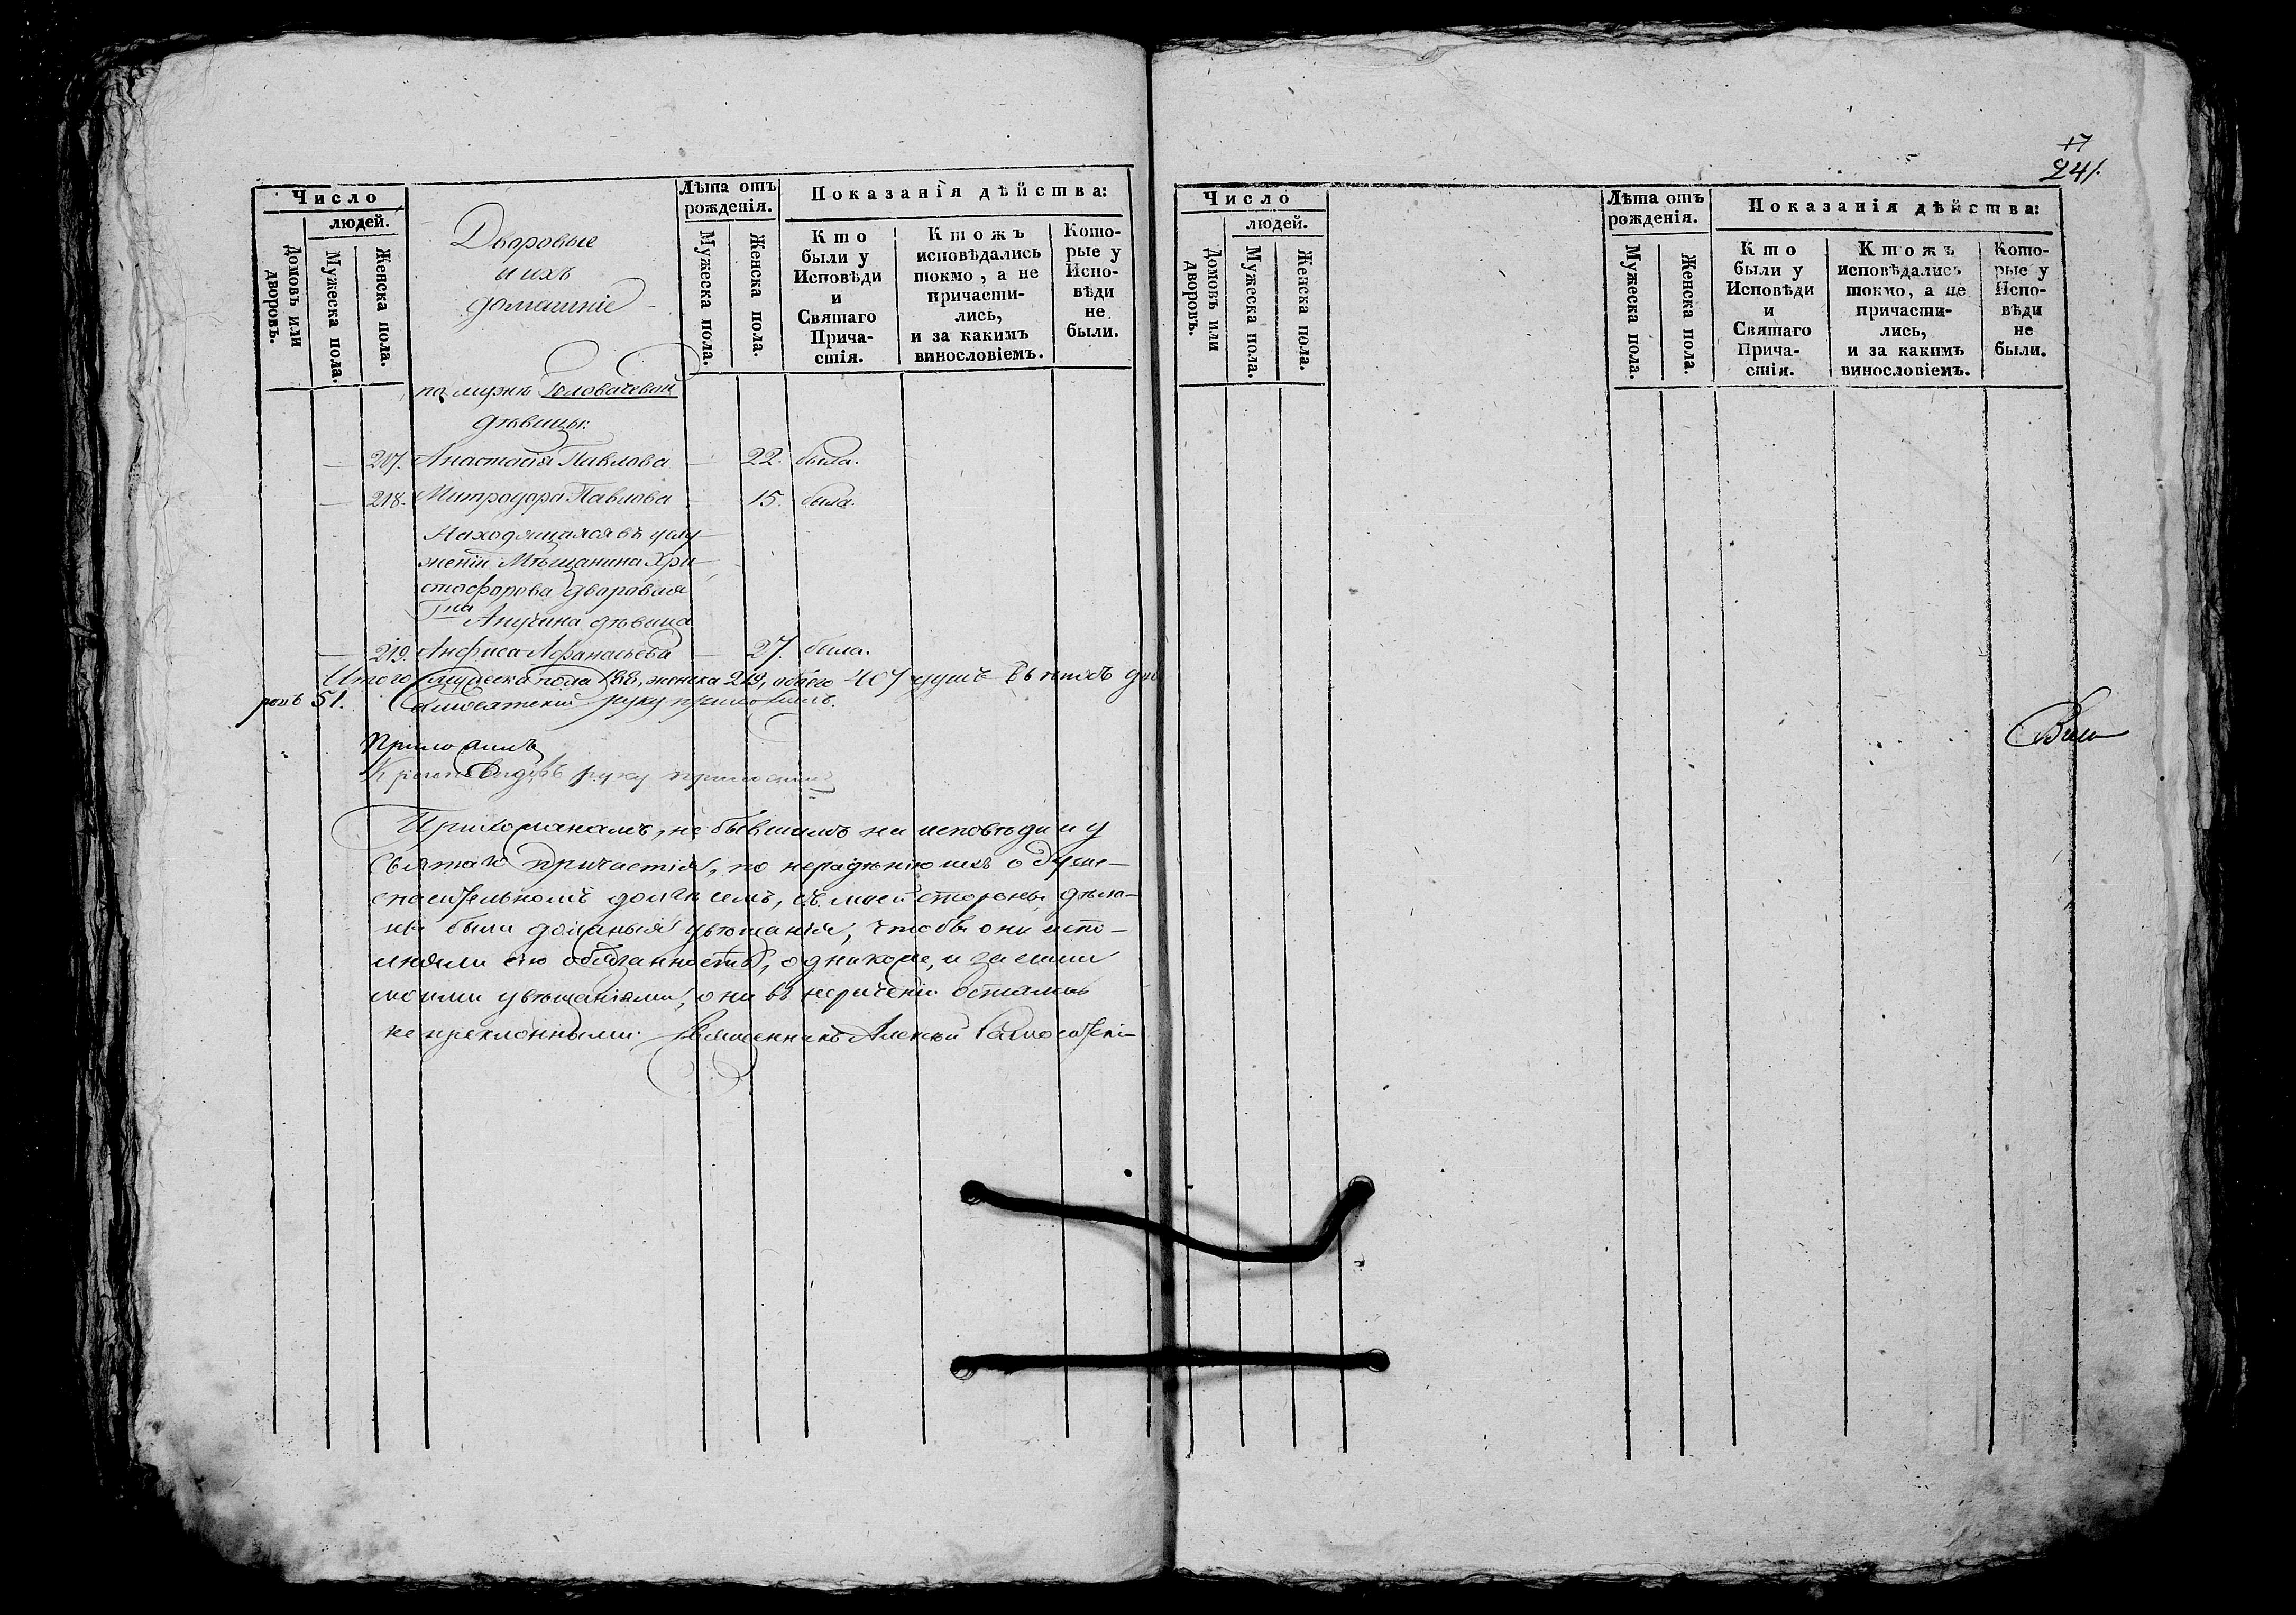 Число
людей.
Домовъ или дворовъ.
Мужеска пола.
Женска пола.
Дворовые
и ихъ
домашніе
Лѣта отъ
рожденія.
Мужеска пола.
Женска пола.
Показанія дѣйства:
Кто
были у
Исповѣди
и
Святаго
Прича-
стія.
Ктожъ
исповѣдались
токмо, а не
причасти-
лись,
и за какимъ
винословіемъ.
Кото-
рые у
Испо-
вѣди
не
были.
по мужѣ Головачевой
дѣвицы:
— 217. Анастасія Павлова — 22. была.
— 218. Митродора Павлова — 15. была.
Находящаяся въ услу-
женіи Мѣщанина Хри-
стофорова дворовая
Гна Анучина дѣвица
— 219. Анфиса Афанасьева — 27. была.
Итого мужеска пола 188, женска 219, обоего 407 душъ
ровъ 51. руку приложилъ.
руку приложилъ
Прихожанамъ, не бывшимъ на исповѣди и у
Святаго причастія, по нерадѣнію ихъ о душе-
спасительномъ долгѣ семъ, съ моей стороны дѣла-
ны были должныя увѣщанія, чтобы они испо-
лняли сію обязанность, однакоже, и за сими
моими увѣщаніями, они въ нераченіи остались
не преклонными. Священникъ Алексѣй
17
241.
Число
людей.
Домовъ или дворовъ.
Мужеска пола.
Женска пола.
Лѣта отъ
рожденія.
Мужеска пола.
Женска пола.
Показанія дѣйства:
Кто
были у
Исповѣди
и
Святаго
Прича-
стія.
Ктожъ
исповѣдались
токмо, а не
причасти-
лись,
и за какимъ
винословіемъ.
Кото-
рые у
Испо-
вѣди
не
были.